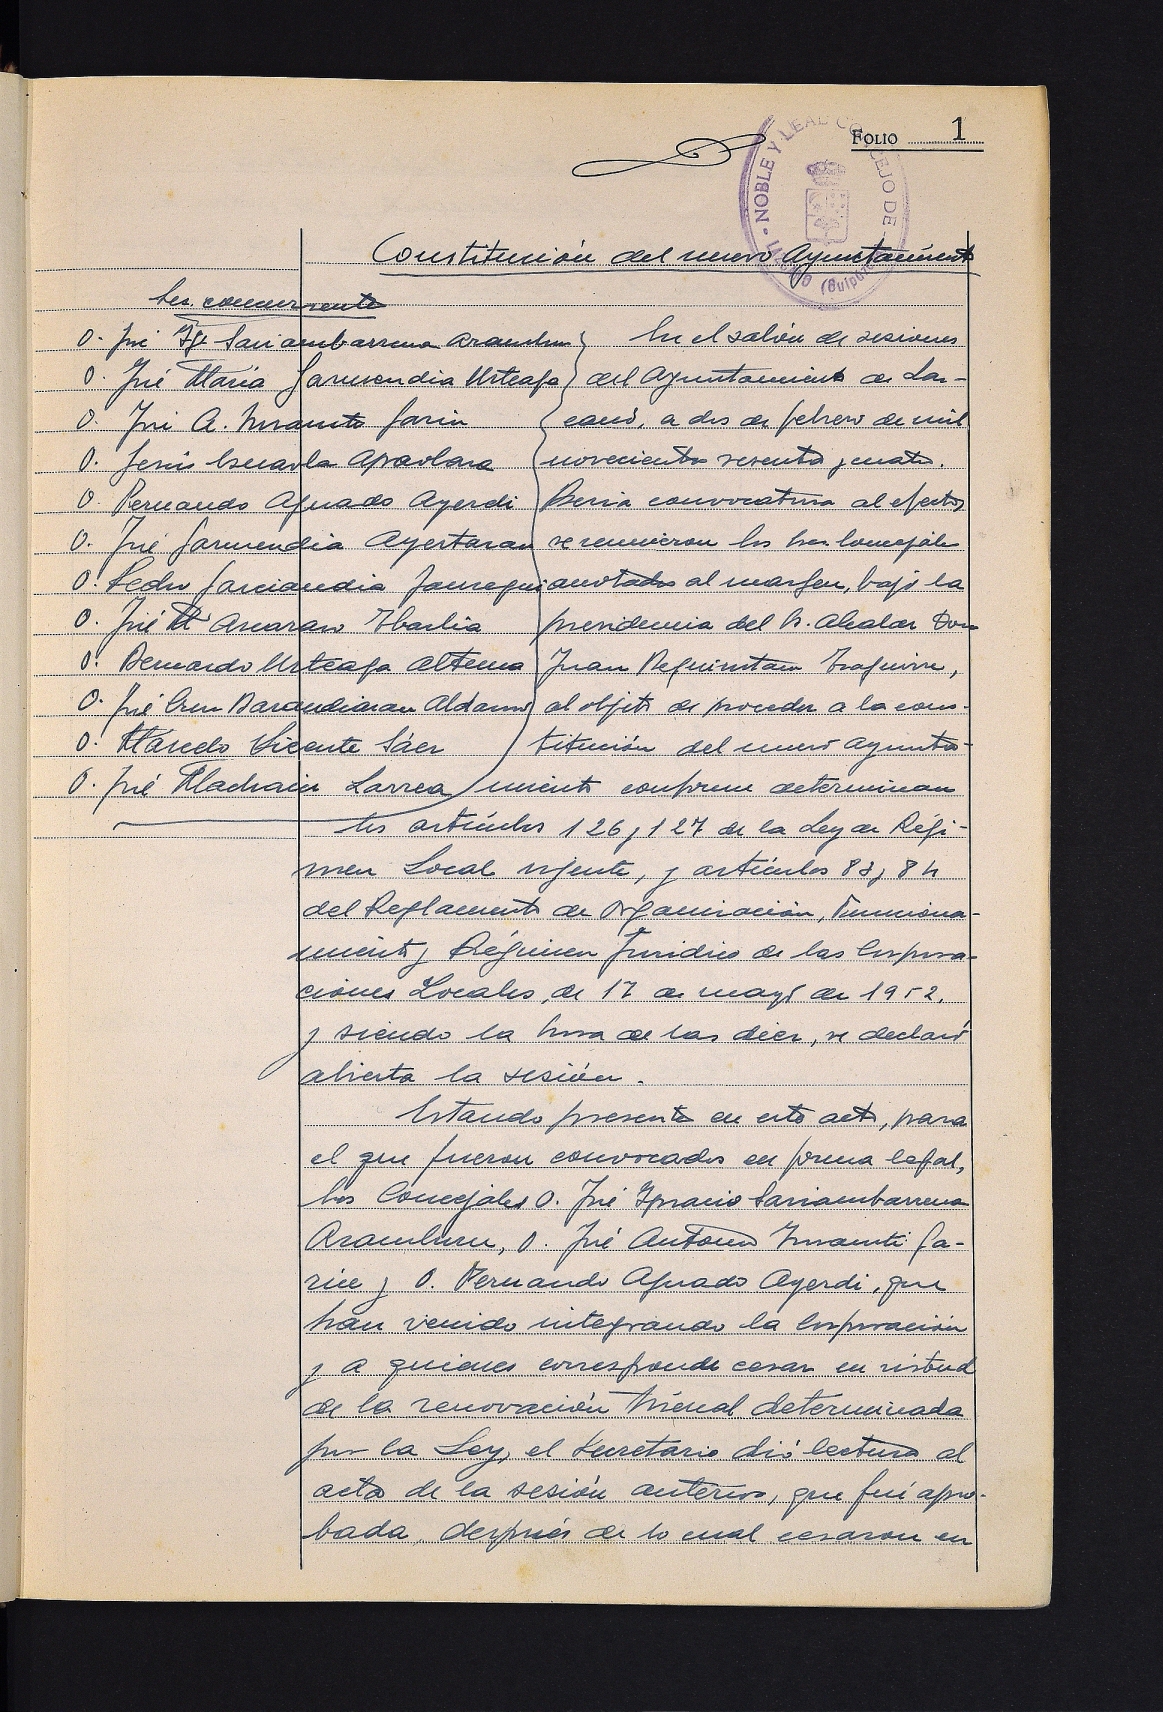 FOLIO 1
NOBLE Y LEAL CONCEJO DE
Constitución del nuevo Ayuntamiento
Sres. concurrentes
D. José Ig. Sarriambarrena Aramburu
D. José Maria Garmendia Urteaga
D. José A. Insausti Garin
D. Jesús Apaolaza
D. Fernando Aguado Ayerdi
D. José Garmendia Ayertaran
D. Pedro Garciandia Jauregui
D. José M Ibarbia
D. Bernardo Urteaga Altuna
D. José Cruz Barandiaran Aldanondo
D. Marcelo Vicente Sáez
D. José Machain Larrea
En el salón de sesiones
del Ayuntamiento de Laz-
cano, a dos de febrero de mil
novecientos sesenta y cuatro.
Previa convocatoria al efecto,
se reunieron los Sres. Concejales
anotados al margen, bajo la
presidencia del Sr. Alcalde Don
Juan Reguiristain Izaguirre,
al objeto de proceder a la cons-
titución del nuevo Ayunta-
miento conforme determinan
los artículos 126 y 127 de la Ley de Régi-
men Local vigente, y artículos 83 y 84
del Reglamento de Organización, Funciona-
miento y Régimen Jurídico de las Corpora-
ciones Locales, de 17 de mayo de 1952,
y siendo la hora de las diez, se declaró
abierta la sesión.
Estando presente en este acto, para
el que fueron convocados en forma legal,
los Concejales D. José Ignacio Sarriambarrena
Aramburu, D. José Antonio Insausti Ga-
rin y D. Fernando Aguado Ayerdi, que
han venido integrando la Corporación
y a quienes corresponde cesar en virtud
de la renovación trienal determinada
por la Ley, el Secretario dió lectura al
acta de la sesión anterior, que fué apro-
bada, después de lo cual cesaron en